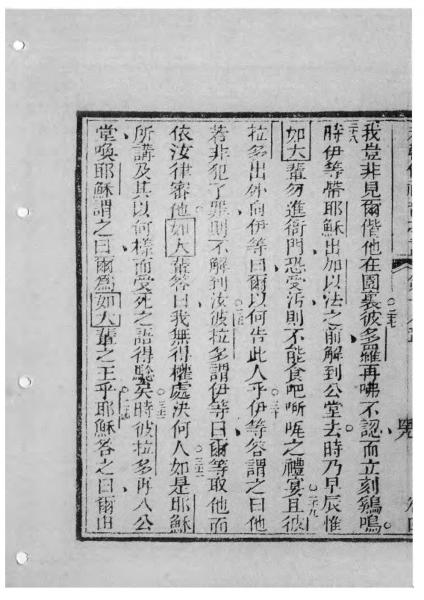 我豈非見爾偕他在園裏○二七彼多羅再咈不認而立刻鷄鳴
二八時伊等帶耶穌出加以法之前解到公堂去時乃早辰惟
如大輩勿進衙門恐受汚則不能食吧之禮宴○二九且彼
拉多出外向伊等曰爾以何告此人乎○三十伊等答謂之曰他
若非犯了罪則不解到汝○三一彼拉多謂伊等曰爾等取他而
依汝律審他如大輩答曰我無得權處決何人○三二如是耶穌
所講及其以何樣而受死之語得驗矣○三三時彼拉多再入公
堂喚耶穌謂之曰爾為如大輩之王乎○三四耶穌答之曰爾由